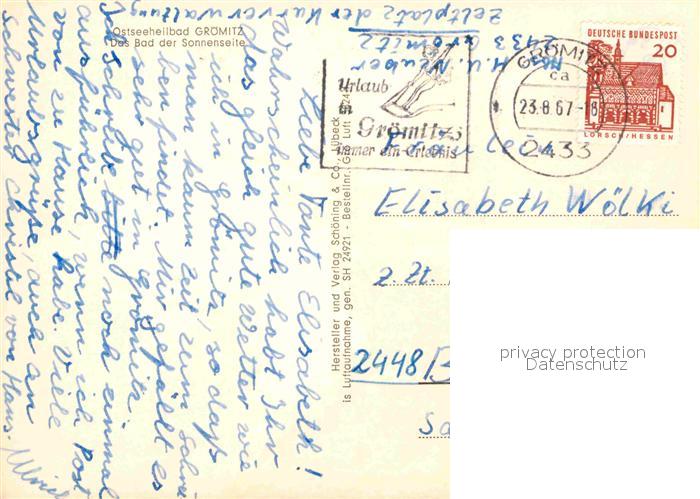 Ostseeheilbad GRÖMITZ
Das Bad der Sonnenseite
Liebe Tante Elisabeth!
Wahrscheinlich habt Ihr
das gleich gute Wetter wie
ich in Grömitz, so daß
man kaum Zeit zum Schrei-
ben findet. Mir gefällt es
sehr gut in Grömitz.
Ich schreibe bitte noch einmal
ausführlich, wenn ich Post
von zu Hause habe. Viele
Urlaubsgrüße, auch an
Schwester Christel von Hans-
Ulrich
Hersteller und Verlag Schöning & Co., Lübeck
is Luftaufnahme, gen. SH 24921 - Bestellnr. Grö Luft
Abs. H.U. Neuber
2433 Grömitz
Zeltplatz der Kurverwaltung
Urlaub
in
Grömitz
immer ein Erlebnis
GRÖMITZ
ca
23.8.67-18
2433
DEUTSCHE BUNDESPOST
20
LORSCH/HESSEN
Fräulein
Elisabeth Wölki
z. Zt.
2448
privacy protection
Datenschutz